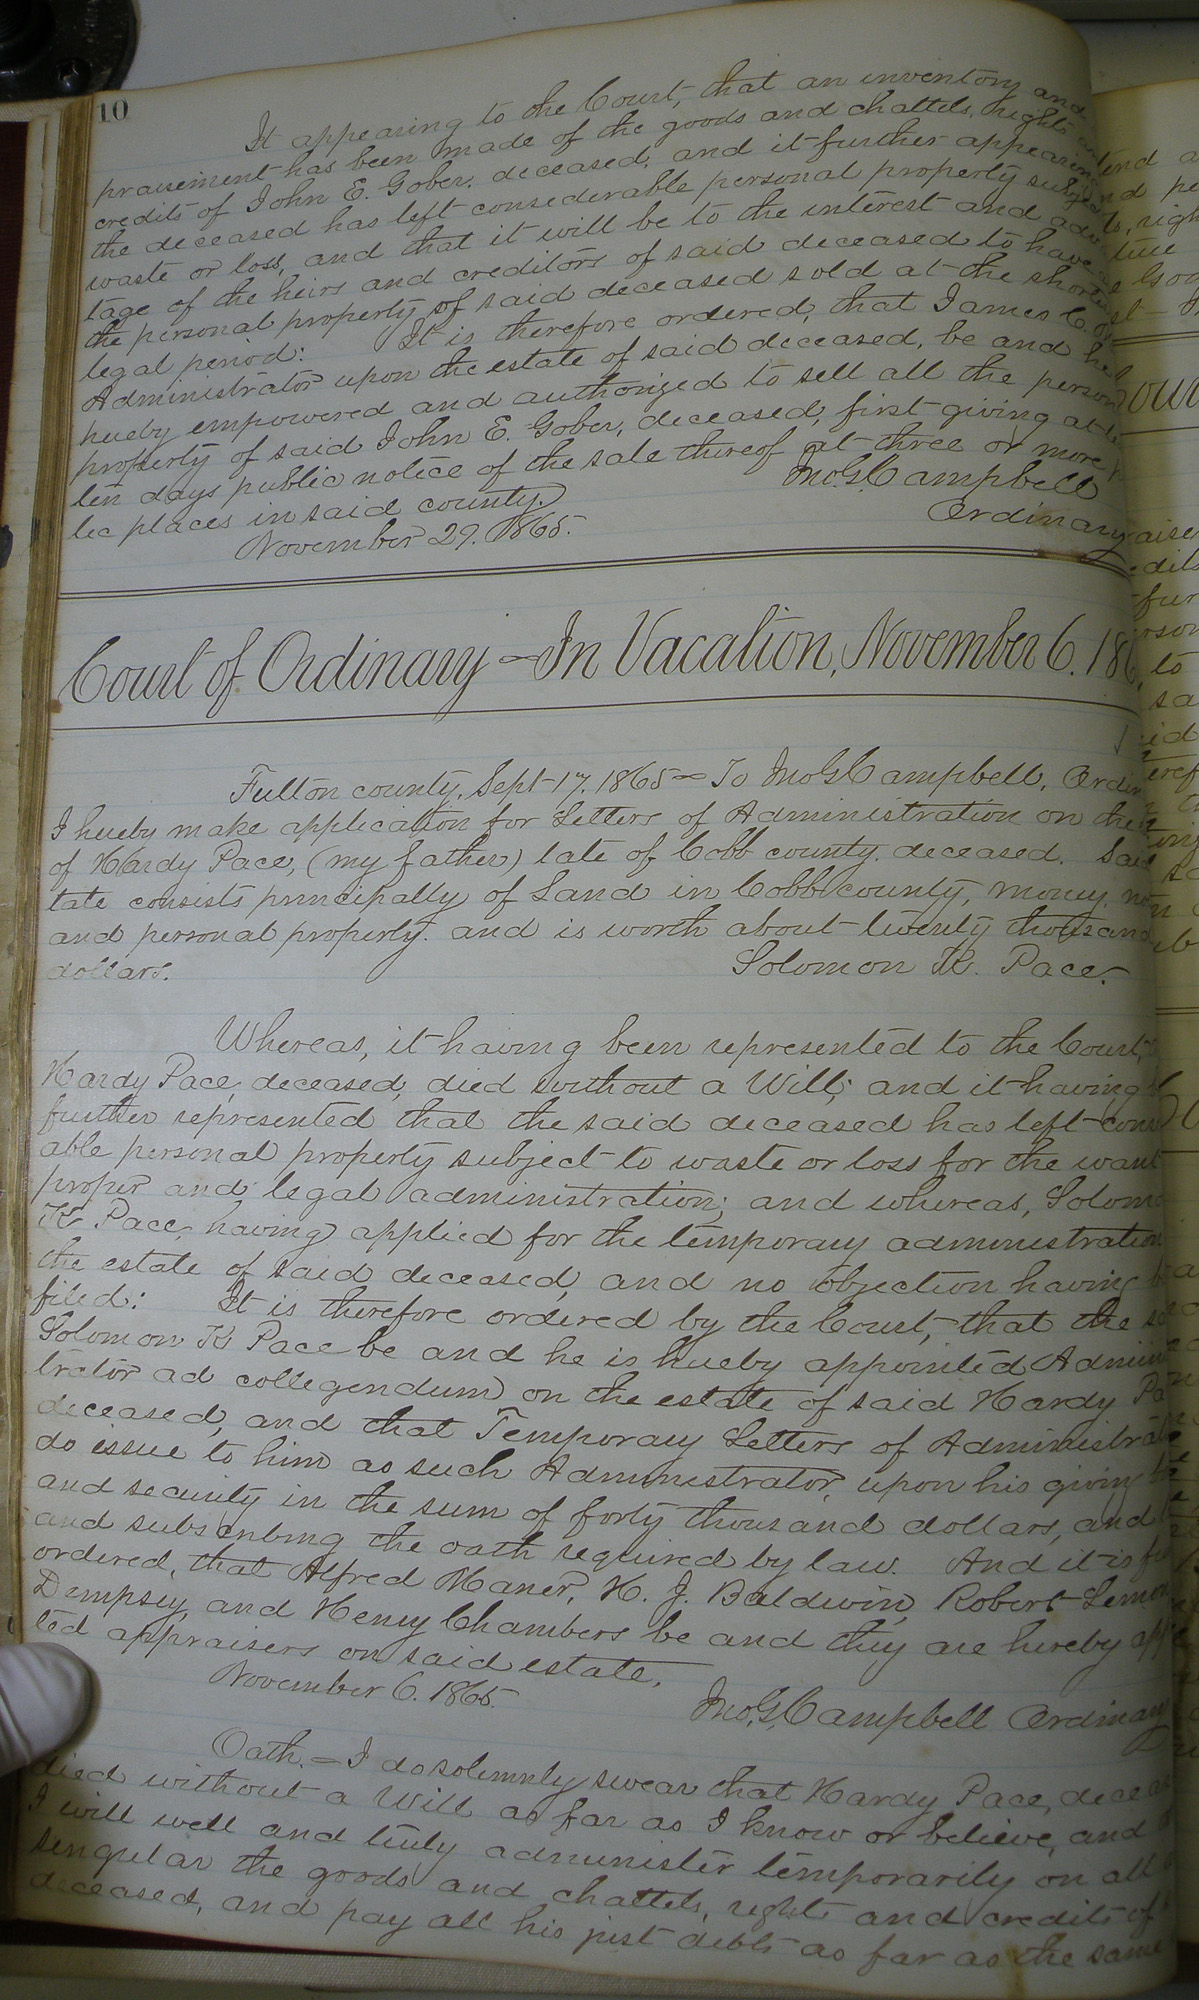 10
It appearing to the Court, that an inventory and
praisement has been made of the goods and chattels, rights
credits of John E. Gober, deceased, and it further appearing
the deceased has left considerable personal property subject
waste or loss, and that it will be to the interest and advan
tage of the heirs and creditors of said deceased to have
the personal property of said deceased sold at the shortest
legal period: It is therefore ordered, that James C.
Administrator upon the estate of said deceased, be and he
hereby empowered and authorized to sell all the person
property of said John E. Gober, deceased, first giving at
ten days public notice of the sale thereof at three or more
lic places in said county.
Jno. G. Campbell
November 29. 1865.
Ordinary
Court of Ordinary – In Vacation, November 6. 186
Fulton county, Sept 17, 1865 – To Jno G Campbell, Ordin
I hereby make application for Letters of Administration on the
of Hardy Pace, (my father) late of Cobb county, deceased. Said
tate consists principally of Land in Cobb county, money,
and personal property. and is worth about twenty thousand
dollars.
Solomon K. Pace.
Whereas, it having been represented to the Court,
Hardy Pace, deceased, died without a Will; and it having
further represented that the said deceased has left consi
able personal property subject to waste or loss for the want
proper and legal administration; and whereas, Solomo
K. Pace, having applied for the temporary administration
the estate of said deceased, and no objection having
filed: It is therefore ordered by the Court, that the
Solomon K Pace be and he is hereby appointed Admin
trator ad collegendum on the estate of said Hardy Pa
deceased, and that Temporary Letters of Administrat
do issue to him as such Administrator, upon his giving
and security in the sum of forty thousand dollars, and
and subscribing the oath required by law. And it is fur
ordered, that Alfred Maner, H. J. Baldwin, Robert Lemon
Dempsey, and Henry Chambers be and they are hereby app
ted appraisers on said estate.
November 6. 1865.
Jno. G. Campbell Ordinary
Oath. – I do solemnly swear that Hardy Pace, decea
died without a Will as far as I know or believe, and
I will well and truly administer temporarily on all
singular the goods and chattels, rights and credits of
deceased, and pay all his just debts as far as the same